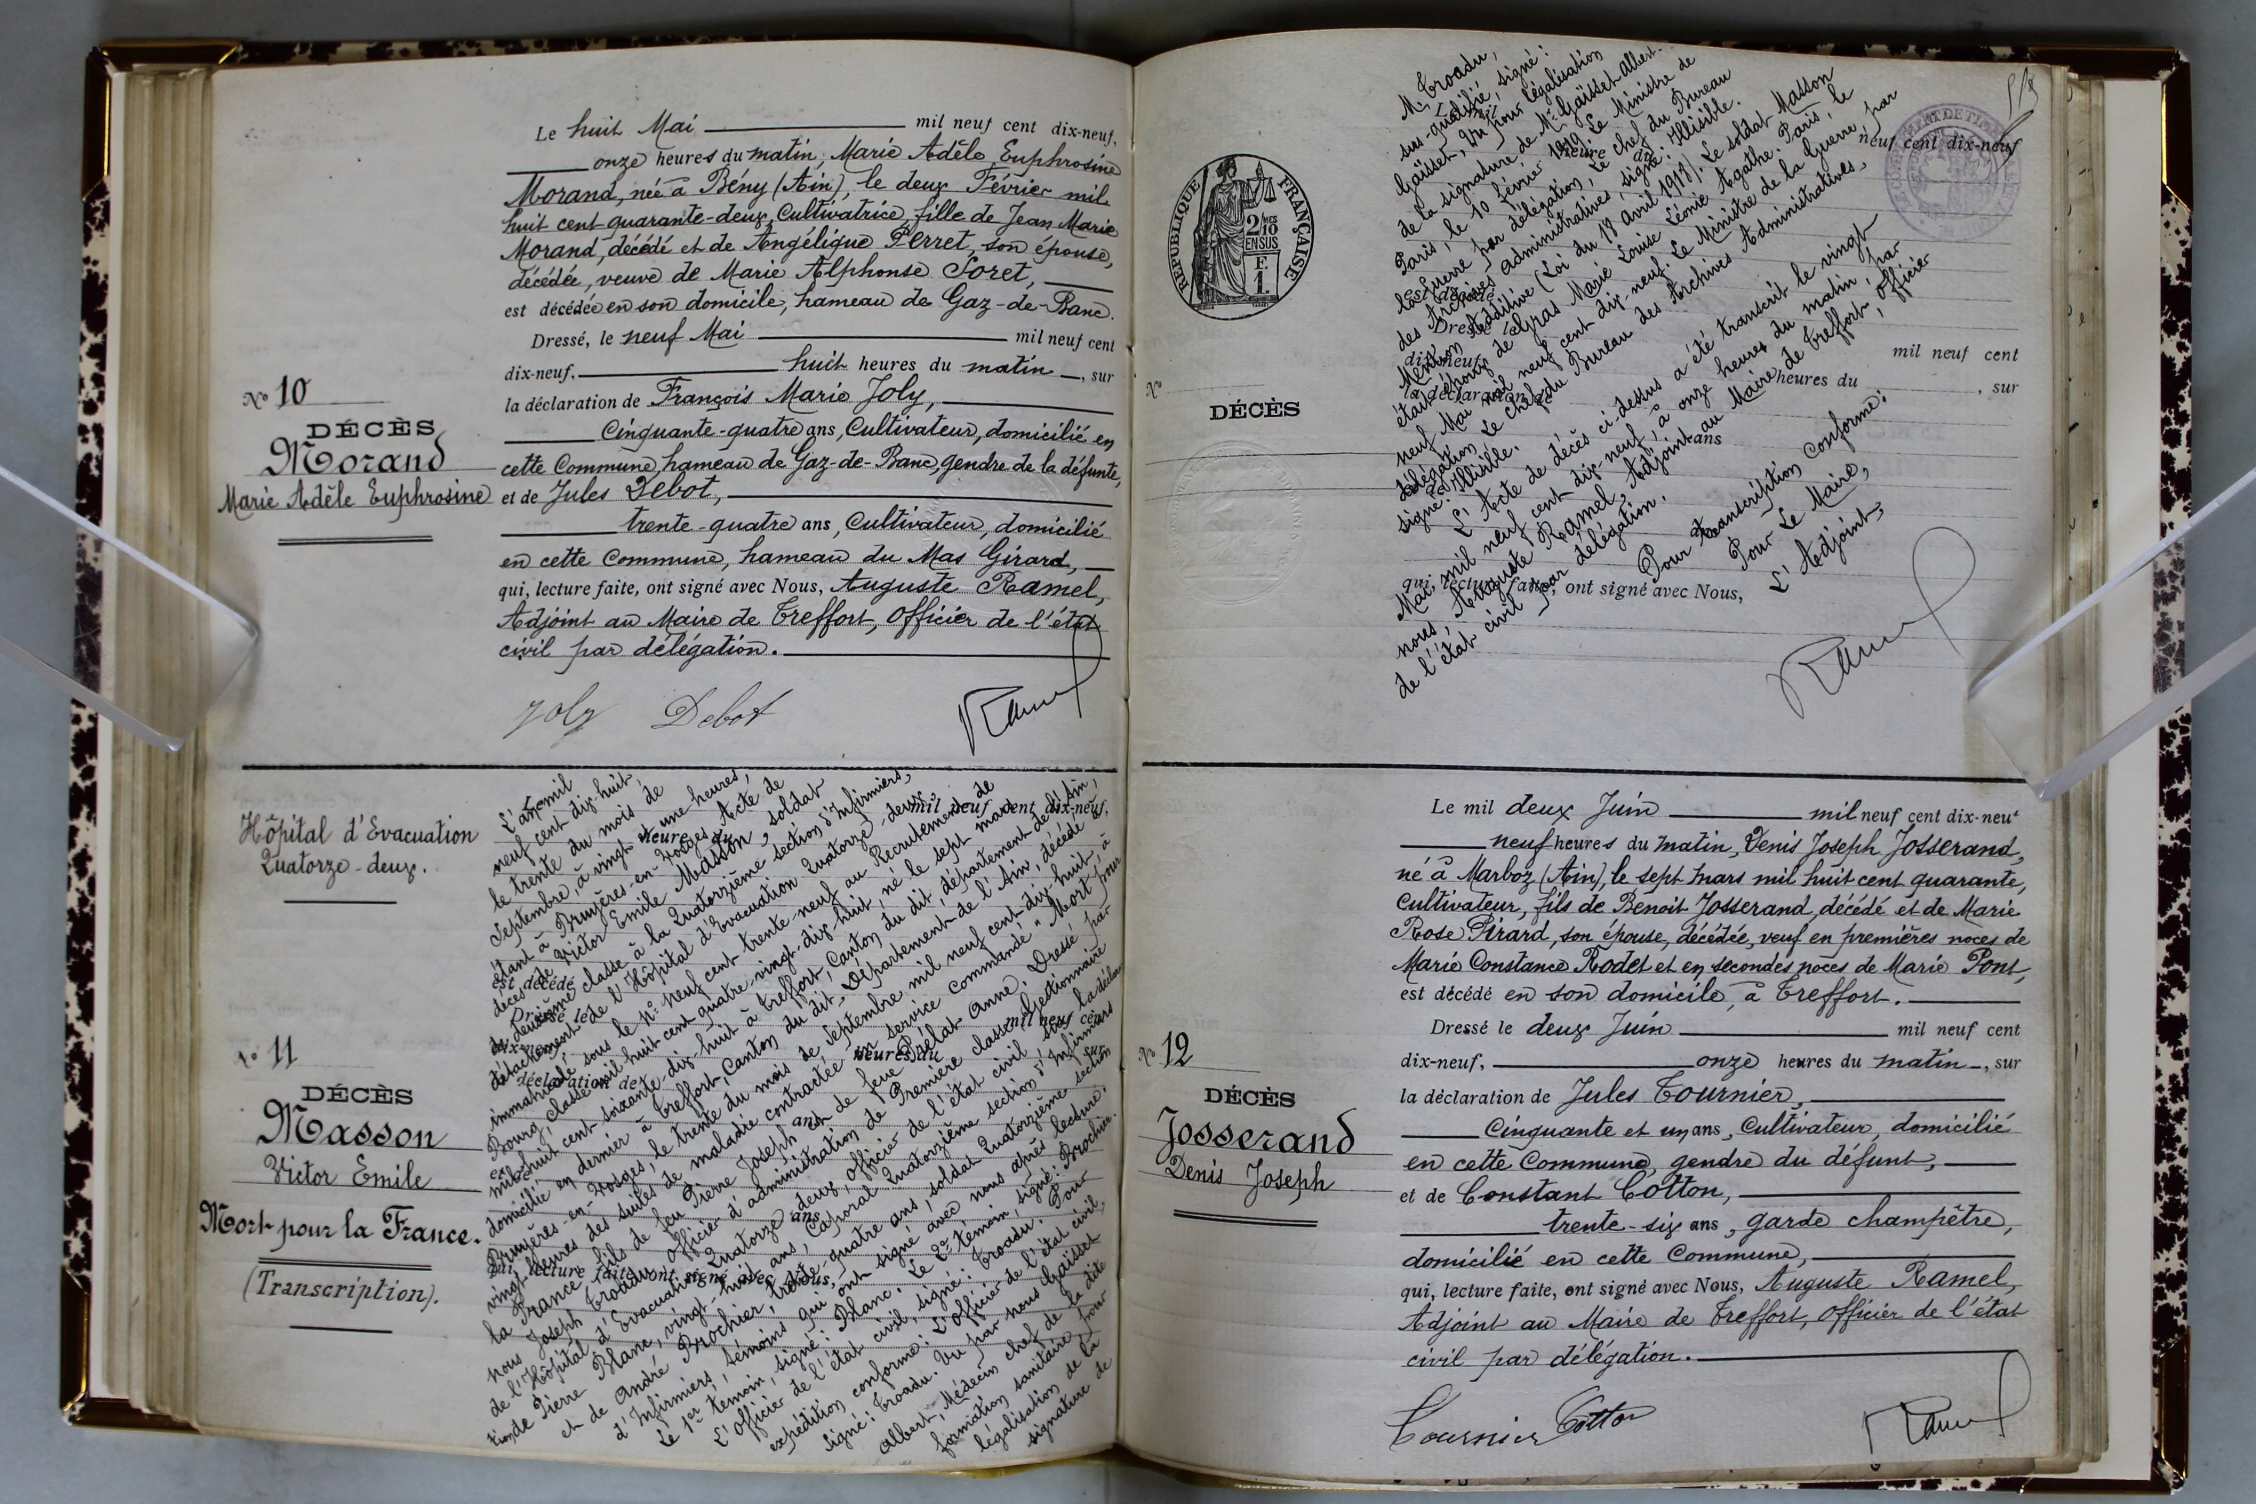 Le huit Mai mil neuf cent dix-neuf,
onze heures du matin, Marie Adèle Euphrosine
Morand, née à Bény (Ain), le deux Février mil
huit cent quarante-deux, Cultivatrice, fille de Jean Marie
Morand, décédé et de Angélique Perret, son épouse,
décédée, veuve de Marie Alphonse Foret,
est décédée en son domicile, hameau de Gaz-de-Banc.
Dressé, le neuf Mai mil neuf cent
dix-neuf, huit heures du matin, sur
la déclaration de François Marie Joly,
Cinquante-quatre ans, Cultivateur, domicilié en
cette Commune, hameau de Gaz-de-Banc, gendre de la défunte,
et de Jules Debot,
trente-quatre ans, Cultivateur, domicilié
en cette Commune, hameau du Mas Girard,
qui, lecture faite, ont signé avec Nous, Auguste Ramel,
Adjoint au Maire de Treffort, Officier de l'état
civil par délégation.
Joly Debot Ramel
No 10
DÉCÈS
Morand
Marie Adèle Euphrosine
Hôpital d'Evacuation
Quatorze-deux.
No 11
DÉCÈS
Masson
Victor Emile
Mort pour la France.
(Transcription).
L'an mil
neuf cent dix-huit,
le trente du mois de
Septembre, à vingt et une heures,
étant à Bruyères-en-Vosges Acte de
décès de Victor Emile Masson, soldat
de deuxième classe à la Quatorzième section d'Infirmiers,
détachement de l'Hôpital d'Evacuation Quatorze-deux,
immatriculé sous le No neuf cent trente-neuf au Recrutement de
Bourg, classe mil huit cent quatre-vingt-dix-huit, né le sept mars
mil huit cent soixante-dix-huit à Treffort, Canton du dit, département de l'Ain,
domicilié en dernier à Treffort, Canton du dit, Département de l'Ain, décédé à
Bruyères-en-Vosges, le trente du mois de Septembre mil neuf cent dix-huit, à
vingt heures des suites de maladie contractée en service commandé "Mort pour
la France", fils de feu Pierre Joseph et de feue Prélat Anne. Dressé par
nous Joseph Croadu, Officier d'administration de Première classe, Gestionnaire
de l'Hôpital d'Evacuation Quatorze-deux, Officier de l'état civil sur la déclara-
tion de Pierre Blanc, vingt-huit ans, Caporal Quatorzième section d'Infirmiers
et de André Brochier, trente-quatre ans, soldat Quatorzième section
d'Infirmiers, témoins qui ont signé avec nous après lecture.
Le 1er témoin, signé: Blanc. Le 2e témoin, signé: Brochier.
L'Officier de l'état civil, signé: Croadu. Pour
expédition conforme: L'Officier de l'état civil,
signé: Croadu. Vu par nous Gaïsset
Albert, Médecin chef de la dite
formation sanitaire pour
légalisation de la
signature de
mil neuf cent dix-neuf,
heure du
est décédé
Dressé le
mil neuf cent
dix-neuf
heures du
déclaration de
ans
ans
qui, lecture faite, ont signé avec Nous,
Mr Croadu,
sus-qualifié, signé:
Gaïsset, Vu pour légalisation
de la signature de Mr Gaïsset Albert.
Paris, le 10 Février 1919 Le Ministre de
la Guerre par délégation, Le Chef du Bureau
des Archives administratives signé: Illisible.
Mention Additive (Loi du 18 Avril 1918). Le soldat Masson
était époux de Gras Marie Louise Léonie Agathe. Paris, le
neuf Mai mil neuf cent dix-neuf. Le Ministre de la Guerre par
délégation, Le Chef du Bureau des Archives Administratives,
signé: Illisible.
L'Acte de décès ci-dessus a été transcrit le vingt
Mai, mil neuf cent dix-neuf, à onze heures du matin, par
nous, Auguste Ramel, Adjoint au Maire de Treffort, Officier
de l'état civil par délégation.
Pour transcription conforme:
Pour Le Maire,
L'Adjoint,
Ramel
RÉPUBLIQUE FRANÇAISE
2/10 MES
EN SUS
F.
1.
No
DÉCÈS
neuf cent dix-neuf
heure du
est décédé
Dressé le
mil neuf cent
dix-neuf
heures du , sur
la déclaration de
ans
qui, lecture faite, ont signé avec Nous,
Le mil deux Juin mil neuf cent dix-neuf
neuf heures du matin, Denis Joseph Josserand,
né à Marboz (Ain), le sept mars mil huit cent quarante,
Cultivateur, fils de Benoit Josserand, décédé et de Marie
Rose Pirard, son épouse, décédée, veuf en premières noces de
Marie Constance Rodet et en secondes noces de Marie Pont,
est décédé en son domicile, à Treffort.
Dressé le deux Juin mil neuf cent
dix-neuf, onze heures du matin, sur
la déclaration de Jules Tournier,
Cinquante et un ans, Cultivateur, domicilié
en cette Commune, gendre du défunt,
et de Constant Cotton,
trente-six ans, garde champêtre,
domicilié en cette Commune,
qui, lecture faite, ont signé avec Nous, Auguste Ramel,
Adjoint au Maire de Treffort, Officier de l'état
civil par délégation.
Tournier Cotton Ramel
No 12
DÉCÈS
Josserand
Denis Joseph